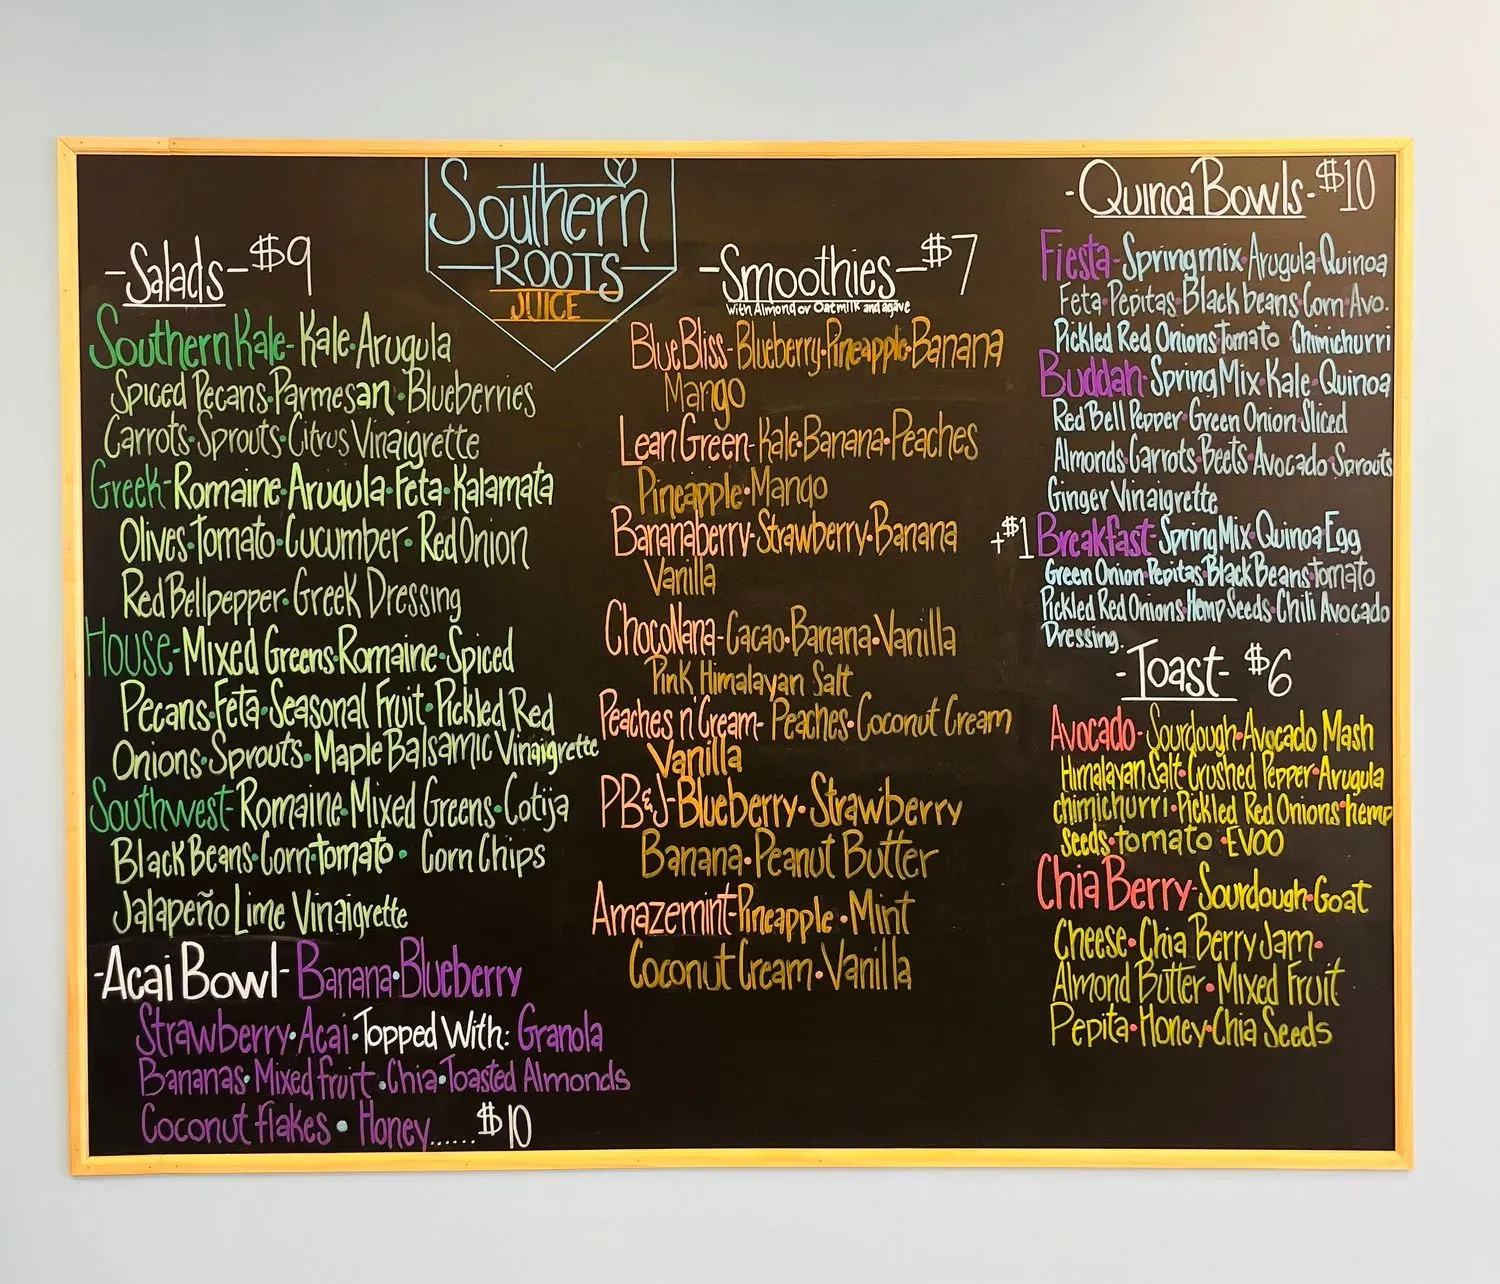 Southern
ROOTS
JUICE
-Salads-$9
Southern Kale-Kale•Arugula
Spiced Pecans•Parmesan•Blueberries
Carrots•Sprouts•Citrus Vinaigrette
Greek-Romaine•Arugula•Feta•Kalamata
Olives•Tomato•Cucumber•Red Onion
Red Bellpepper•Greek Dressing
House-Mixed Greens•Romaine•Spiced
Pecans•Feta•Seasonal Fruit•Pickled Red
Onions•Sprouts•Maple Balsamic Vinaigrette
Southwest-Romaine•Mixed Greens•Cotija
Black Beans•Corn•tomato•Corn Chips
Jalapeño Lime Vinaigrette
-Acai Bowl-Banana•Blueberry
Strawberry•Acai•Topped With: Granola
Bananas•Mixed fruit•Chia•Toasted Almonds
Coconut flakes•Honey......$10
-Smoothies-$7
with Almond or Oatmilk and agave
Blue Bliss-Blueberry•Pineapple•Banana
Mango
Lean Green-Kale•Banana•Peaches
Pineapple•Mango
Bananaberry-Strawberry•Banana
Vanilla
ChocoNana-Cacao•Banana•Vanilla
Pink Himalayan Salt
Peaches n' Cream-Peaches•Coconut Cream
Vanilla
PB&J-Blueberry•Strawberry
Banana•Peanut Butter
Amazemint-Pineapple•Mint
Coconut Cream•Vanilla
-Quinoa Bowls-$10
Fiesta-Spring mix•Arugula•Quinoa
Feta•Pepitas•Black beans•Corn•Avo.
Pickled Red Onions Tomato Chimichurri
Buddah-Spring Mix•Kale•Quinoa
Red Bell Pepper•Green Onion•Sliced
Almonds•Carrots•Beets•Avocado•Sprouts
Ginger Vinaigrette
+$1 Breakfast-Spring Mix•Quinoa•Egg
Green Onion•Pepitas•Black Beans•Tomato
Pickled Red Onions•Hemp Seeds•Chili Avocado
Dressing.
-Toast-$6
Avocado-Sourdough•Avocado Mash
Himalayan Salt•Crushed Pepper•Arugula
chimichurri•Pickled Red Onions•hemp
seeds•tomato•EVOO
Chia Berry-Sourdough•Goat
Cheese•Chia Berry Jam•
Almond Butter•Mixed Fruit
Pepita•Honey•Chia Seeds